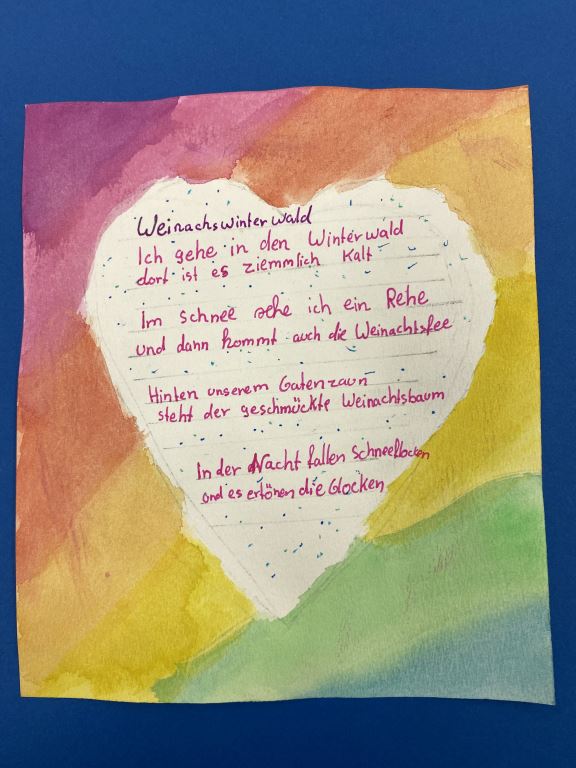 Weinachswinterwald
Ich gehe in den Winterwald
dort ist es ziemmlich Kalt
Im schnee sehe ich ein Rehe
und dann kommt auch die Weinachtsfee
Hinten unserem Gatenzaun
steht der geschmückte Weinachtsbaum
In der Nacht fallen Schneeflocken
und es ertönen die Glocken